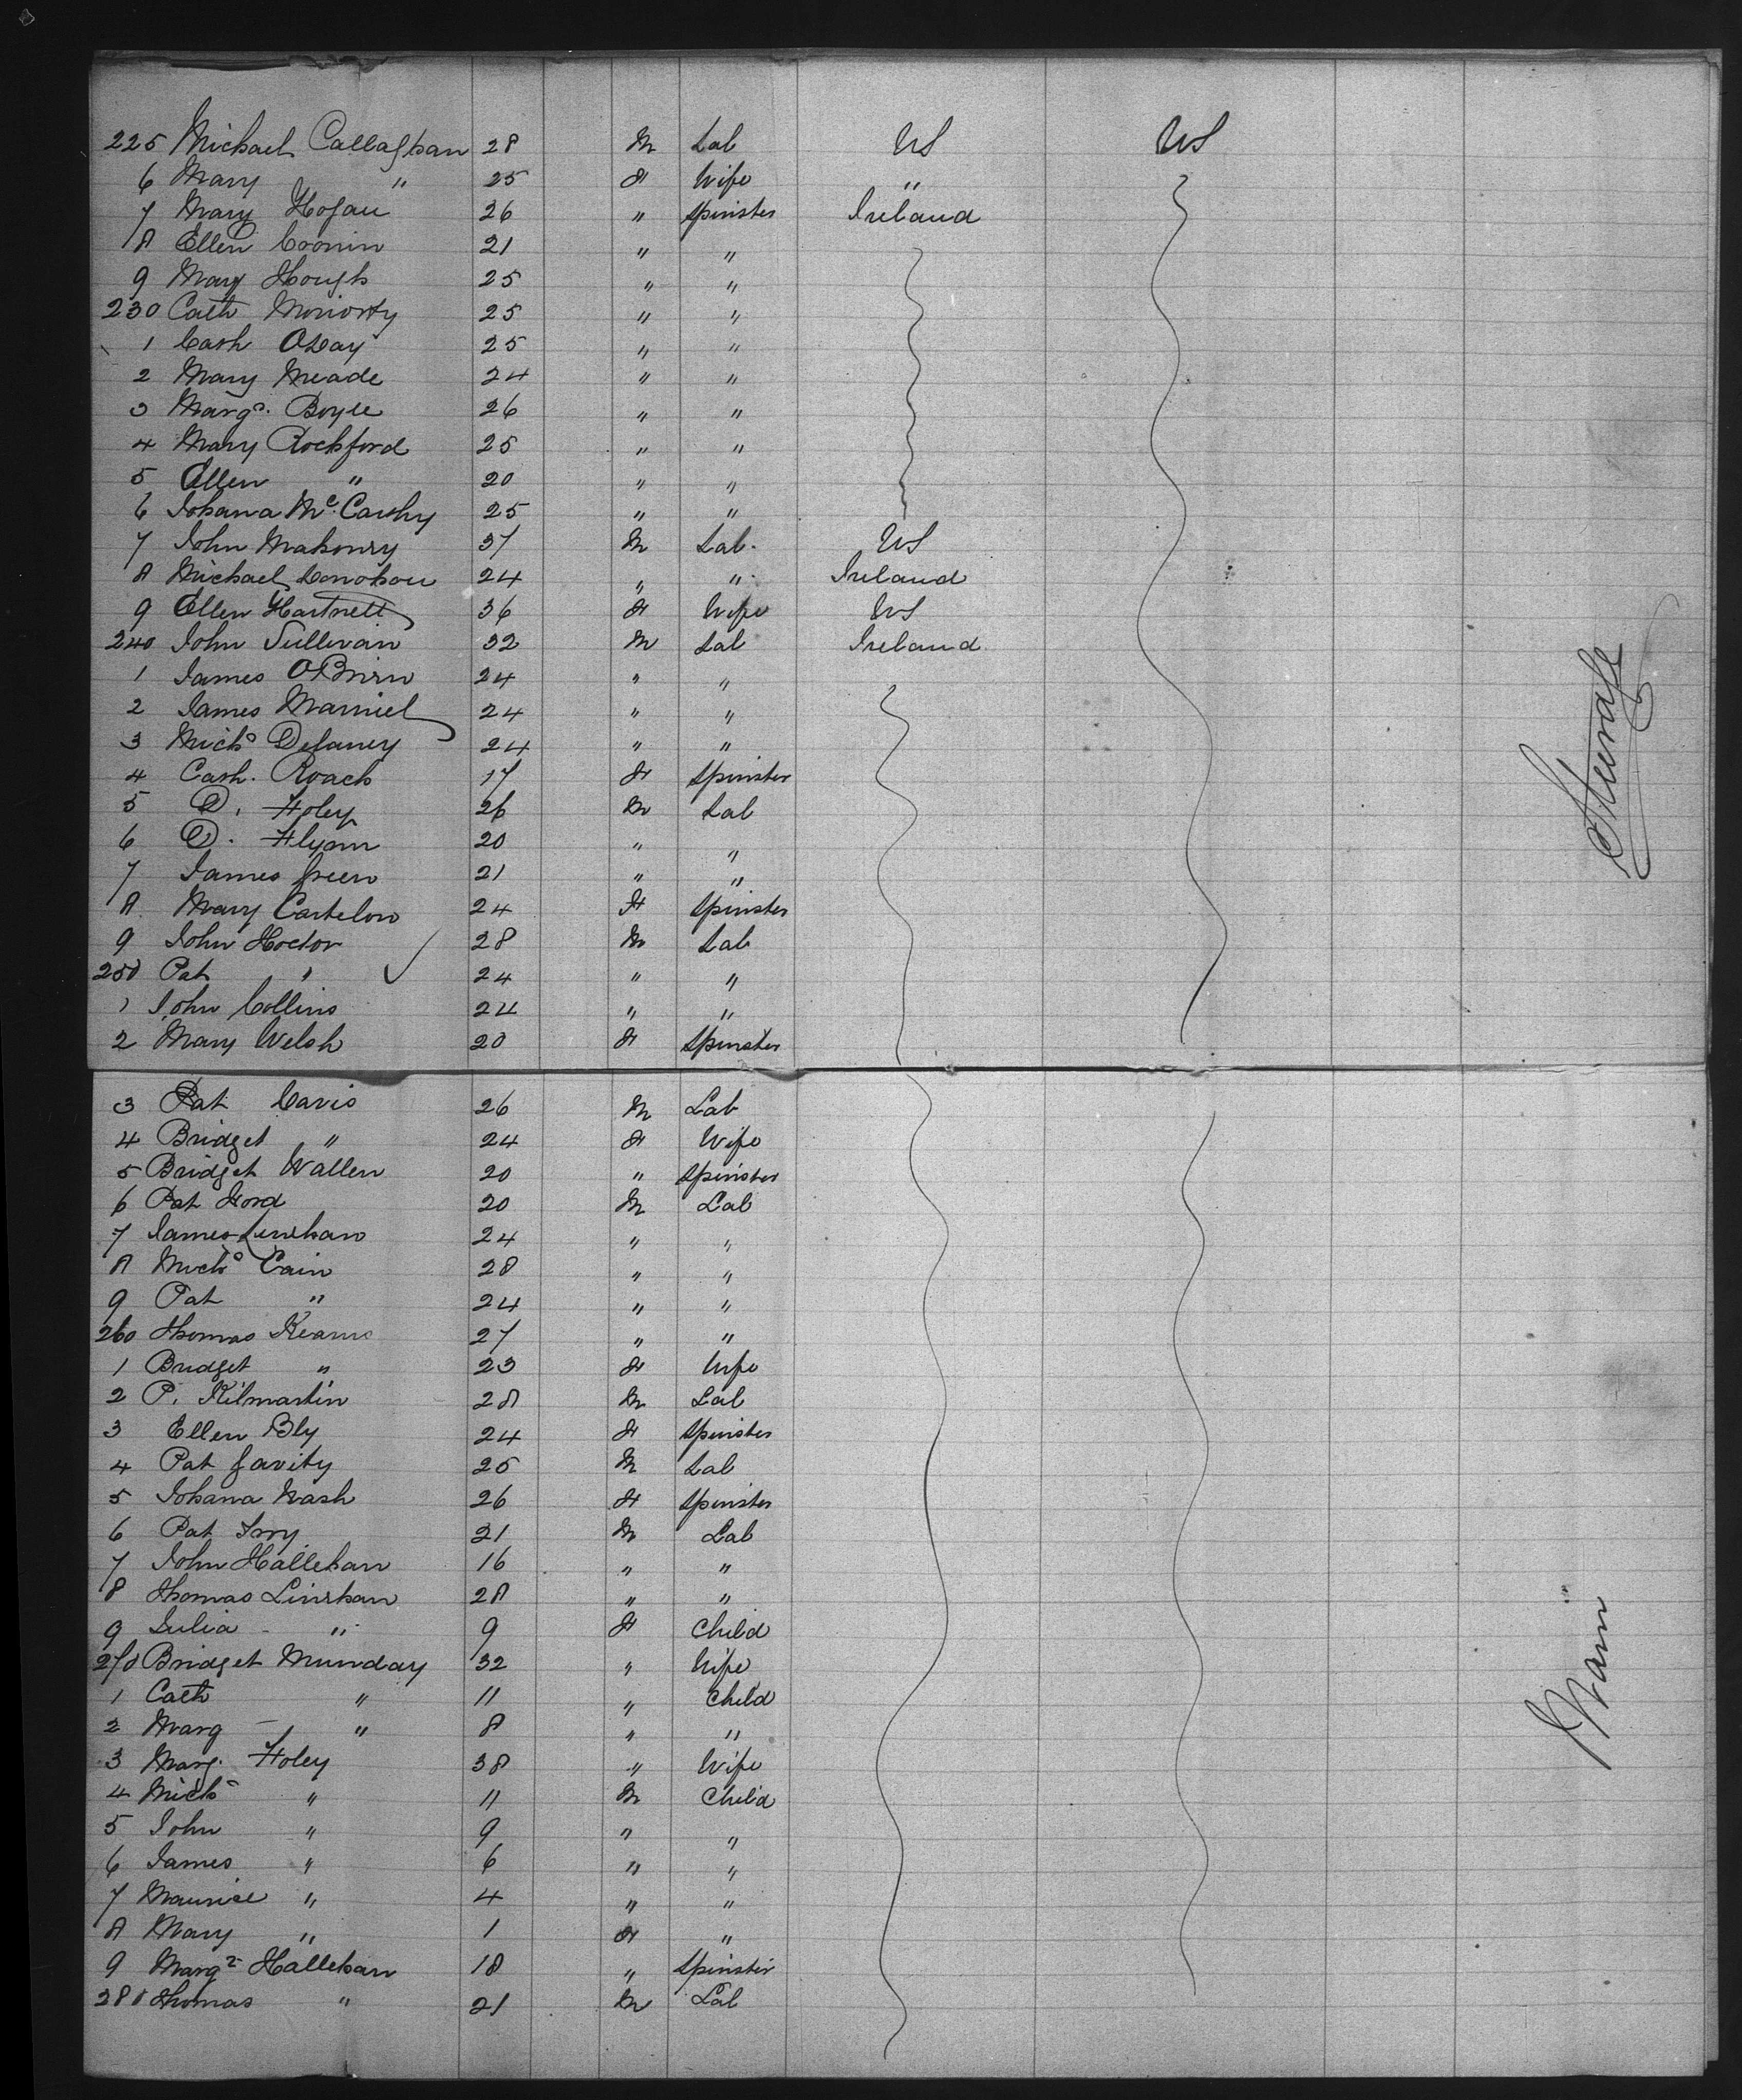 225 Michael Callaghan 28 M Lab US US
6 Mary " 25 F Wife "
7 Mary Hogan 26 " Spinster Ireland
8 Ellen Cronin 21 " "
9 Mary Hough 25 " "
230 Cath Moriorty 25 " "
1 Cath ODay 25 " "
2 Mary Meade 24 " "
3 Margt. Boyle 26 " "
4 Mary Rochford 25 " "
5 Ellen " 20 " "
6 Johana McCarthy 25 " "
7 John Mahonry 37 M Lab. US
8 Michael Donohou 24 " " Ireland
9 Ellen Hartnett 36 F Wife US
240 John Sullivan 32 M Lab Ireland
1 James OBrien 24 " "
2 James 24 " "
3 Michl Delaney 24 " "
4 Cath. Roach 17 F Spinster
5 D. Foley 26 M Lab
6 D. Flyann 20 " "
7 James Green 21 " "
8 Mary Costelow 24 F Spinster
9 John Hoctor 28 M Lab
250 Pat " 24 " "
1 John Collins 24 " "
2 Mary Welsh 20 F Spinster
3 Pat Cavis 26 M Lab
4 Bridget " 24 F Wife
5 Bridget Wallen 20 " Spinster
6 Pat Ford 20 M Lab
7 James Linehan 24 " "
8 Michl Cain 28 " "
9 Pat " 24 " "
260 Thomas Kearns 27 " "
1 Bridget " 23 F Wife
2 P. Kilmartin 28 M Lab
3 Ellen Bly 24 F Spinster
4 Pat Gavity 25 M Lab
5 Johana Nash 26 F Spinster
6 Pat 21 M Lab
7 John Hallehan 16 " "
8 Thomas Linehan 28 " "
9 Julia " 9 F Child
270 Bridget Munday 32 " Wife
1 Cath " 11 " Child
2 Marg " 8 " "
3 Marg. Foley 38 " Wife
4 Michl " 11 M Child
5 John " 9 " "
6 James " 6 " "
7 Maurice " 4 " "
8 Mary " 1 F "
9 Margt Hallehan 18 " Spinster
280 Thomas " 21 M Lab
Steerage
Main